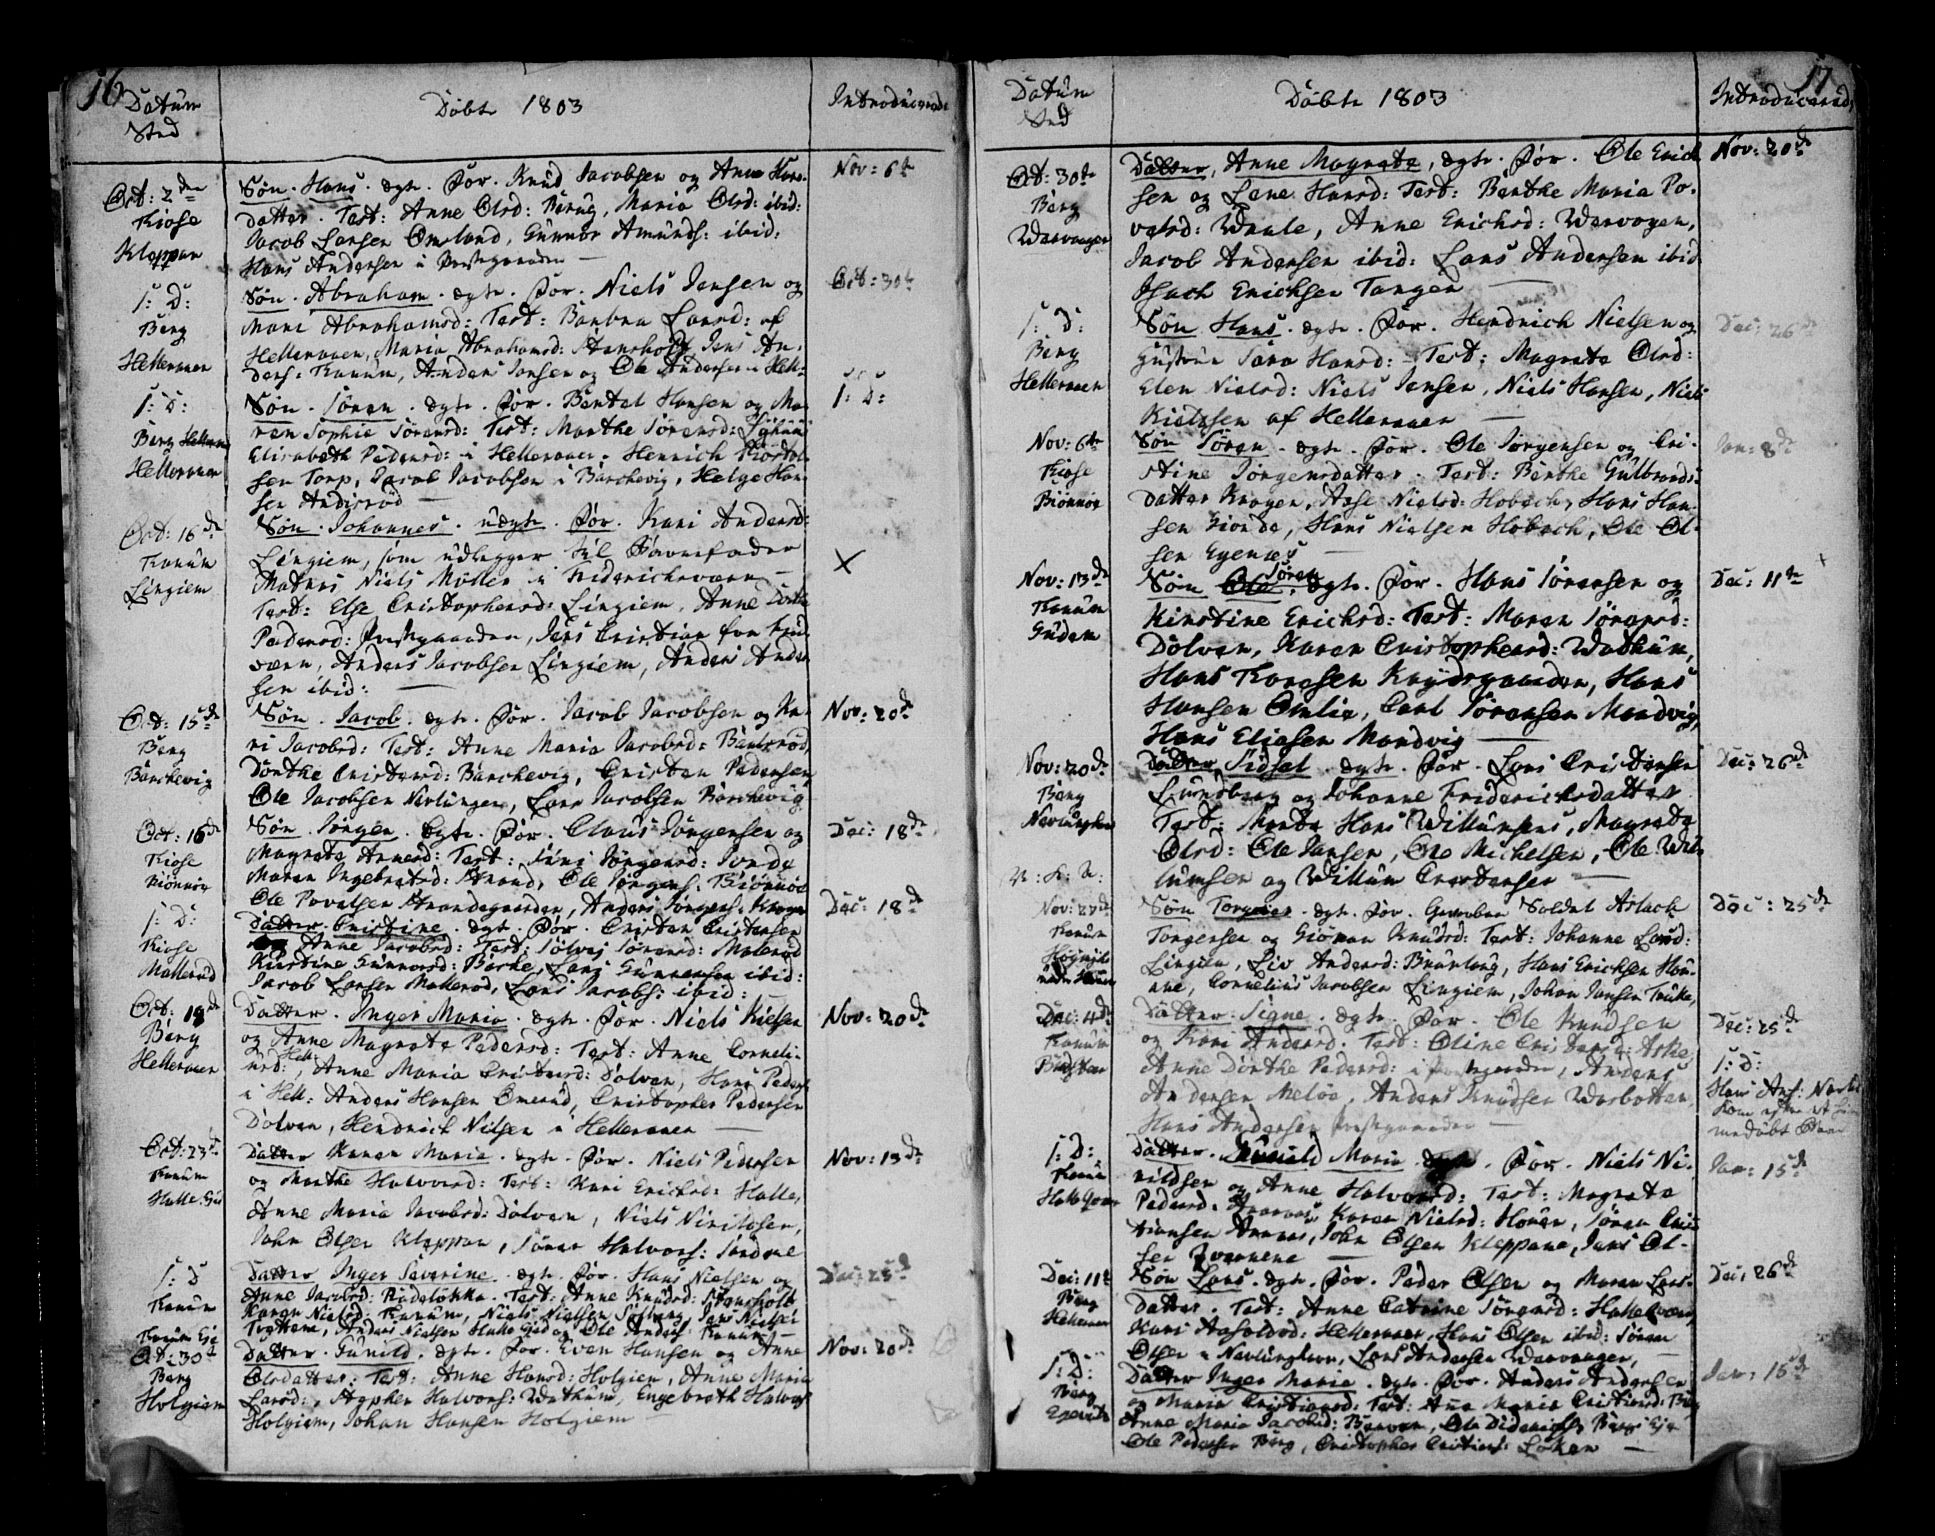 16
Datum
Sted
Döbte 1803
Introducerede
Oct: 2den
Kiose
Kleppan
Søn. Hans. ægte. For. Knud Jacobsen og Anne Hans-
datter. Test: Anne Olsd: Barug, Maria Olsd: ibid:
Jacob Larsen Omsland, Gunnar Amunds: ibid:
Hans Andersen i Præstegaarden —
Nov: 6te
S: D:
Berg
Helleraaen
Søn. Abraham. ægte. For. Niels Jensen og
Mari Abrahamsd: Test: Barbra Larsd: af
Helleraaen, Maria Abrahamsd: Stansholt, Jens An-
ders: Tanum, Anders Jensen og Ole Andersen i Hell:
Oct: 30te
S: D:
Berg
Helleraaen
Søn. Sören. ægte. For. Bentel Hansen og Ma-
ren Sophie Sörensd: Test: Marthe Sörensd:
Elisabeth Pedersd: i Helleraaen. Henrich
sen Torp, Jacob Jacobsen i Barchevig, Helge Han-
sen Andisröd —
S: D:
Oct: 16de
Tanum
Lingiem
Søn. Johannes. uægte. For. Kari Andersd:
Lingiem, som udlegger til Barnefader
Matros Niels Møller i Friderichsværn —
Test: Else Cristophersd: Lingiem, Anne Dorthe
Pedersd: Præstegaarden, Jens Cristian fra Frid-
værn, Anders Jacobsen Lingiem, Anders Ander-
sen ibid: —
X
Oct: 15de
Berg
Barchevig
Søn. Jacob. ægte. For. Jacob Jacobsen og Ka-
ri Jacobsd: Test: Anne Maria Jacobsd:
Dorthe Cristensd: Barchevig, Cristen Pedersen
Ole Jacobsen Nevlungen, Lars Jacobsen Barchevig
Nov: 20de
Oct: 16de
Kiose
Biönnöe
Søn. Jörgen. ægte. For. Claus Jörgensen og
Magrete Annesd: Test: Siri Jörgensd: Jonde
Maren Ingebretsd: Strand, Ole Jörgens: Biönnöe
Ole Povelsen Strandegaarden, Anders Jörgens: Kragen
Dec: 18de
S: D:
Kiose
Malleröd
Datter. Cristine. ægte. For. Cristen Cristensen
og Anne Jacobsd: Test: Sölvej Sörensd: Malleröd
Kirstine Gunnarsd: Barke, Lars Gunnarsen ibid:
Jacob Larsen Malleröd, Lars Jacobs: ibid:
Dec: 18de
Oct: 19de
Berg
Helleraaen
Datter. Inger Maria. ægte. For. Niels Kielsen
og Anne Magrete Pedersd: Test: Anne Corneli-
usd: Hell:, Anne Maria Cristensd: Dolven, Hans Peders:
i Hell: Anders Hansen Omsrud, Cristopher Pedersen
Dolven, Hendrich Nilsen i Helleraaen —
Nov: 20de
Oct: 23de
Tanum
Halle
Datter Karen Maria. ægte. For. Niels Pedersen
og Marthe Halvorsd: Test: Kari Ericksd: Halle,
Anne Maria Jacobsd: Dolven, Niels Nirildsen,
John Olsen Kleppan, Sören Halvors:
Nov: 13de
S: D
Tanum
Datter Inger Severine. ægte. For. Hans Nielsen og
Anne Jacobsd: Test: Anne Knudsd: Stansholt
Karen Nielsd: Tanum, Niels Nielsen
Anders Nielsen Halle Gud og Ole Anders: Tanum —
Dec: 25de
Oct: 30te
Berg
Holgiem
Datter. Gunild. ægte. For. Even Hansen og Anne
Olsdatter: Test: Anne Hansd: Holgiem, Anne Maria
Larsd:, Stepher Halvors: Wathum, Engebreth Halvors:
Holgiem, Johan Hansen Holgiem —
Nov: 20de
17
Datum
Sted
Döbte 1803
Introducerede
Oct: 30te
Berg
Warvaagen
Datter, Anne Magrete, ægte. For. Ole Erich-
sen og Lene Hansd: Test: Berthe Maria Po-
velsd: Waale, Anne Ericksd: Warvogen,
Jacob Andersen ibid: Lars Andersen ibid
Isach Ericksen Tangen —
Nov: 20de
S: D:
Berg
Helleraaen
Søn Hans. ægte. For. Hendrich Nielsen og
hustrue Sara Hansd: Test: Magrete Olsd:
Elen Nielsd: Niels Jensen, Niels Hansen, Niels
Kielsen af Helleraaen —
Dec: 26de
Nov: 6te
Kiose
Biönnöe
Søn Sören. ægte. For. Ole Jörgensen og Cri-
stine Jörgensdatter. Test: Berthe Gulbrands-
datter Kragen, Aase Nielsd: Hobæck, Hans Han-
sen Gionde, Hans Nielsen Hobæch, Ole Ol-
sen Egenæs —
Jan: 8de
Nov: 13de
Tanum
Gudem
Søn Sören ægte. For. Hans Sörensen og
Kirstine Ericksd: Test: Maren Sörensd:
Dolven, Karen Cristophersd: Wathum,
Hans Knudsgaarden, Hans
Hansen Omlie, Carl Sörensen Mandvig,
Hans Eliasen Mandvig —
Dec: 11te
Nov: 20de
Berg
Nevlunghavn
Datter Sidsel. ægte. For. Lars Cristensen
og Johanne Friderichsdatter
Test: Marte Hans Willumsens, Magrete
Olsd: Ole Jansen, Ole Michelsen, Ole Wil-
lumsen og Willum Cristensen —
Dec: 26de
Nov: 27de
Tanum
Søn Torger. ægte. For. Soldat Aslach
Torgersen og Giöran Knudsd: Test: Johanne Larsd:
Lingiem, Liv Andersd: Brunlaug, Hans Ericksen Hau-
ane, Cornelius Jacobsen Lingiem, Johan Jansen
Dec: 25de
Dec: 4de
Tanum
Datter. Signe. ægte. For. Ole Knudsen
og Kari Andersd. Test: Oline Cristensd: Aske
Anne Dorthe Pedersd: i Præstegaarden, Anders
Andersen Melöe, Anders Knudsen Warbotten,
Hans Andersen Præstegaarden —
Dec: 25de
S: D:
S: D:
Tanum
Datter. Gunild Maria. ægte. For. Niels Ni-
rildsen og Anne Halvorsd: Test: Magrete
Pedersd: Karen Nielsd: Hauen, Sören Cris-
tiansen John Olsen Kleppane, Jens Ol-
sen —
Jan: 15de
Dec: 11te
Berg
Helleraaen
Søn Lars. ægte. For. Peder Olsen og Maren Lars-
datter. Test: Anne Catrine Sörensd:
Kari Helleraaen, Hans Olsen ibid: Sören
Olsen i Nevlunghavn, Lars Andersen Warvaagen, —
Dec: 26de
S: D:
Berg
Datter Inger Maria. ægte. For. Anders Andersen
og Maria Cristensd: Test: Ana Maria Cristiansd:
Anne Maria Jacobsd: Ole Diderichs: Berg
Ole Pedersen Berg, Cristopher Cristens: Löken —
Jan: 15de